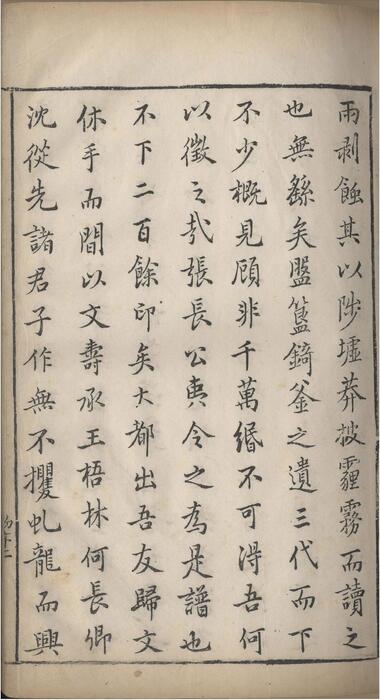 雨剥蝕其以陟墟莽披霾霧而讀之
也無繇矣盟簋錡釜之遺三代而下
不少概見顧非千萬緡不可得吾何
以徵之哉張長公輿令之為是譜也
不下二百餘印矣大都出吾友歸文
休手而間以文壽承王梧林何長卿
沈從先諸君子作無不攫虬龍而興